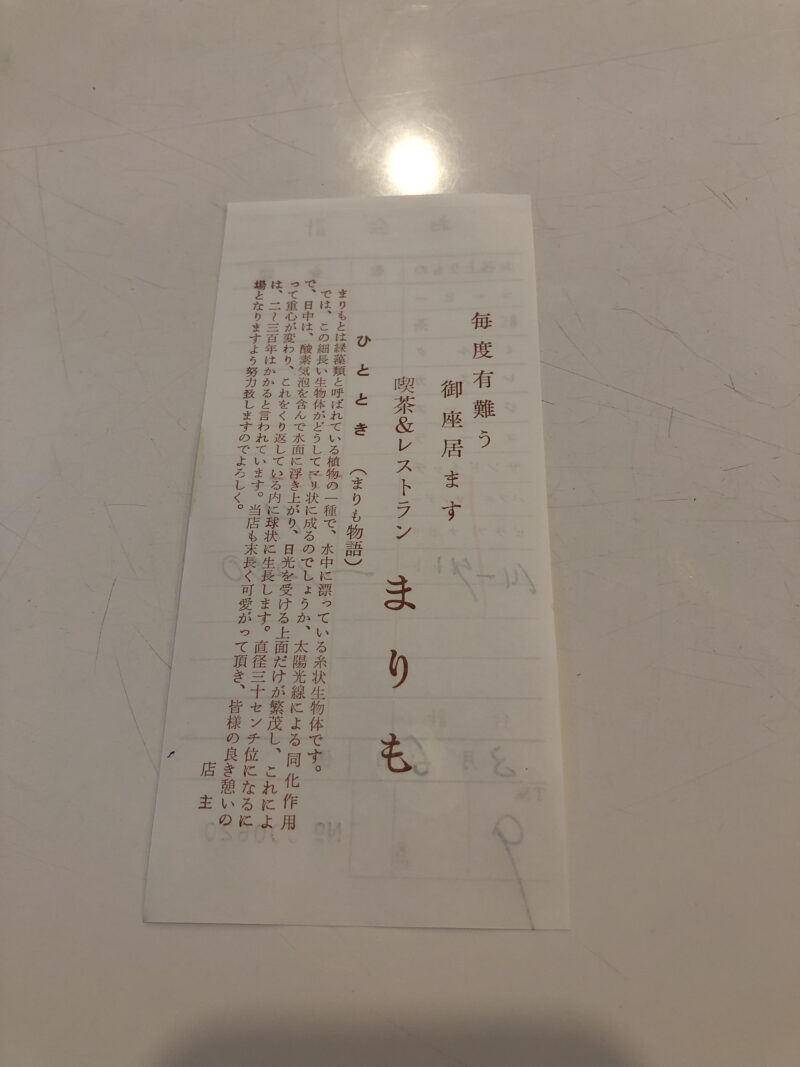 毎度有難う
御座居ます
喫茶&レストラン まりも
ひととき (まりも物語)
まりもとは緑藻類と呼ばれている植物の一種で、水中に漂っている糸状生物体です。
では、この細長い生物体がどうしてマリ状に成るのでしょうか、太陽光線による同化作用
で、日中は、酸素気泡を含んで水面に浮き上がり、日光を受ける上面だけが繁茂し、これによ
って重心が変わり、これをくり返している内に球状に生長します。直径三十センチ位になるに
は、二〜三百年はかかると言われています。当店も末長く可愛がって頂き、皆様の良き憩いの
場となりますよう努力致しますのでよろしく。
店主